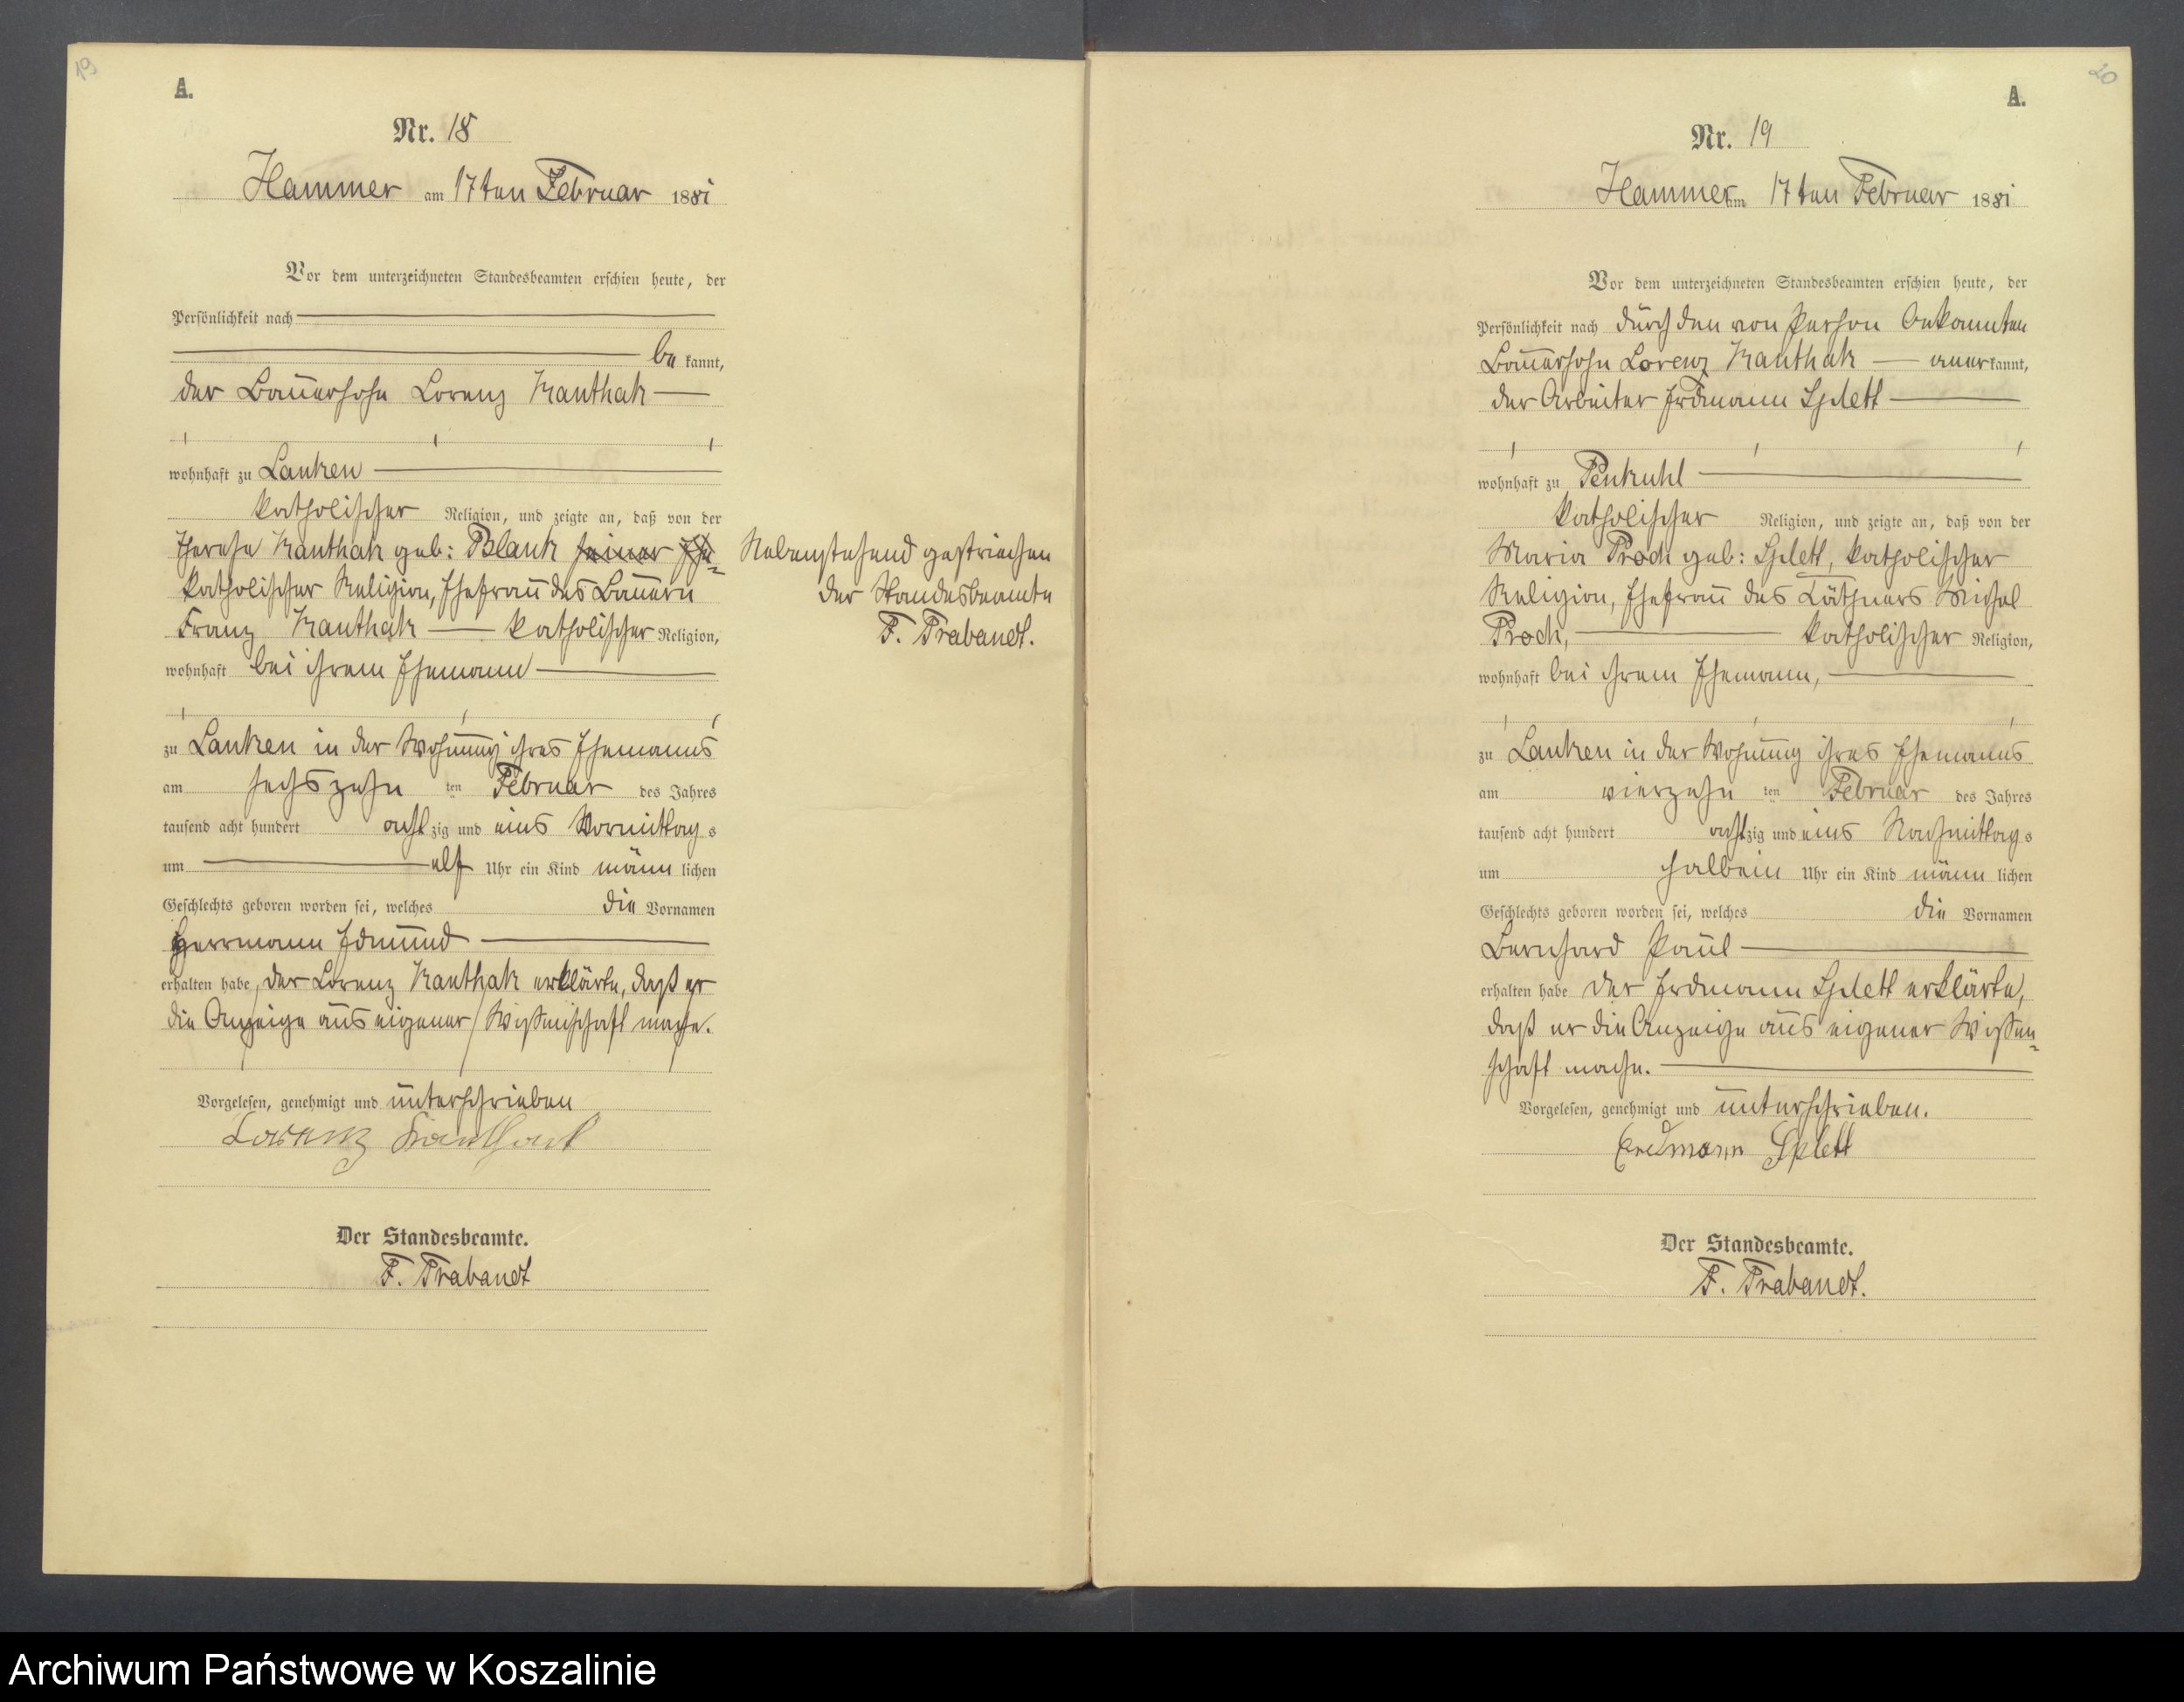 19
A.
Nr. 18
Hammer am 17ten Februar 1881
Vor dem unterzeichneten Standesbeamten erschien heute, der
Persönlichkeit nach
be kannt,
der Bauersohn Lorenz Kanthak
wohnhaft zu Lanken
katholischer Religion, und zeigte an, daß von der
Therese Kanthak geb: Blank seiner Ehe-
katholischer Religion, Ehefrau des Bauern
Franz Kanthak katholischer Religion,
wohnhaft bei ihrem Ehemann
zu Lanken in der Wohnung ihres Ehemanns
am sechszehn ten Februar des Jahres
tausend acht hundert acht zig und eins Vormittag s
um elf Uhr ein Kind männ lichen
Geschlechts geboren worden sei, welches die Vornamen
Herrmann Edmund
erhalten habe, der Lorenz Kanthak erklärte, daß er
die Anzeige aus eigener Wissenschaft mache.
Vorgelesen, genehmigt und unterschrieben
Lorenz Kanthak
Der Standesbeamte.
F. Prabandt
Nebenstehend gestrichen
der Standesbeamte
F. Prabandt.
20
A.
Nr. 19
Hammer am 17ten Februar 1881
Vor dem unterzeichneten Standesbeamten erschien heute, der
Persönlichkeit nach durch den von Person bekannten
Bauersohn Lorenz Kanthak aner kannt,
der Arbeiter Erdmann Splett
wohnhaft zu Penkuhl
katholischer Religion, und zeigte an, daß von der
Maria Proch geb: Splett, katholischer
Religion, Ehefrau des Käthners Michel
Proch, katholischer Religion,
wohnhaft bei ihrem Ehemann,
zu Lanken in der Wohnung ihres Ehemanns
am vierzehn ten Februar des Jahres
tausend acht hundert acht zig und eins Nachmittag s
um halbein Uhr ein Kind männ lichen
Geschlechts geboren worden sei, welches die Vornamen
Bernhard Paul
erhalten habe der Erdmann Splett erklärte,
daß er die Anzeige aus eigener Wissen-
schaft mache.
Vorgelesen, genehmigt und unterschrieben.
Erdmann Splett
Der Standesbeamte.
F. Prabandt.
Archiwum Państwowe w Koszalinie